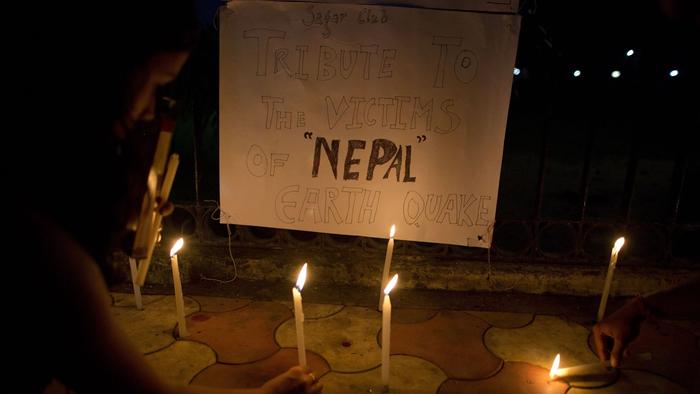 Sagar Club
TRIBUTE TO
THE VICTIMS
OF "NEPAL"
EARTH QUAKE